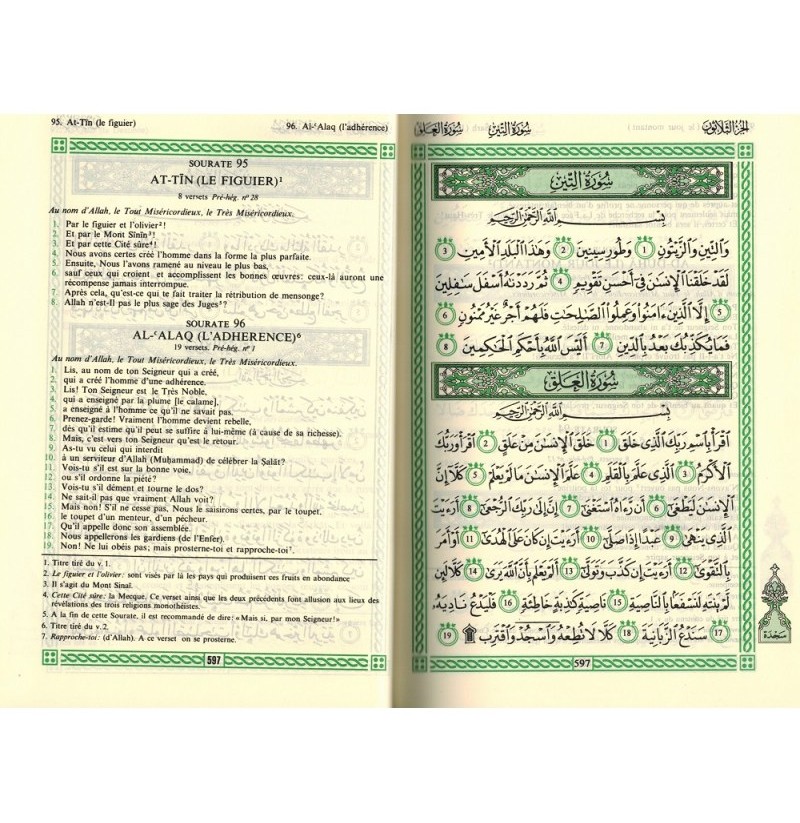 95. At-Tîn (le figuier)
96. Al-ʿAlaq (l'adhérence)
SOURATE 95
AT-TÎN (LE FIGUIER)¹
8 versets Pré-hég. n° 28
Au nom d'Allah, le Tout Miséricordieux, le Très Miséricordieux.
1. Par le figuier et l'olivier²!
2. Et par le Mont Sinîn³!
3. Et par cette Cité sûre⁴!
4. Nous avons certes créé l'homme dans la forme la plus parfaite.
5. Ensuite, Nous l'avons ramené au niveau le plus bas,
6. sauf ceux qui croient et accomplissent les bonnes œuvres: ceux-là auront une
récompense jamais interrompue.
7. Après cela, qu'est-ce qui te fait traiter la rétribution de mensonge?
8. Allah n'est-Il pas le plus sage des Juges⁵?
SOURATE 96
AL-ʿALAQ (L'ADHERENCE)⁶
19 versets. Pré-hég. n° 1
Au nom d'Allah, le Tout Miséricordieux, le Très Miséricordieux.
1. Lis, au nom de ton Seigneur qui a créé,
2. qui a créé l'homme d'une adhérence.
3. Lis! Ton Seigneur est le Très Noble,
4. qui a enseigné par la plume [le calame],
5. a enseigné à l'homme ce qu'il ne savait pas.
6. Prenez-garde! Vraiment l'homme devient rebelle,
7. dès qu'il estime qu'il peut se suffire à lui-même (à cause de sa richesse).
8. Mais, c'est vers ton Seigneur qu'est le retour.
9. As-tu vu celui qui interdit
10. à un serviteur d'Allah (Muḥammad) de célébrer la Ṣalāt?
11. Vois-tu s'il est sur la bonne voie,
12. ou s'il ordonne la piété?
13. Vois-tu s'il dément et tourne le dos?
14. Ne sait-il pas que vraiment Allah voit?
15. Mais non! S'il ne cesse pas, Nous le saisirons certes, par le toupet,
16. le toupet d'un menteur, d'un pécheur.
17. Qu'il appelle donc son assemblée.
18. Nous appellerons les gardiens (de l'Enfer).
19. Non! Ne lui obéis pas; mais prosterne-toi et rapproche-toi⁷.
1. Titre tiré du v. 1.
2. Le figuier et l'olivier: sont visés par là les pays qui produisent ces fruits en abondance
3. Il s'agit du Mont Sinaï.
4. Cette Cité sûre: la Mecque. Ce verset ainsi que les deux précédents font allusion aux lieux des
révélations des trois religions monothéistes.
5. A la fin de cette Sourate, il est recommandé de dire: «Mais si, par mon Seigneur!»
6. Titre tiré du v.2.
7. Rapproche-toi: (d'Allah). A ce verset on se prosterne.
597
الجزء الثلاثون
سورة التين
سورة العلق
سُورَةُ التِّينِ
بِسْمِ اللَّهِ الرَّحْمَٰنِ الرَّحِيمِ
وَالتِّينِ وَالزَّيْتُونِ ١ وَطُورِ سِينِينَ ٢ وَهَٰذَا الْبَلَدِ الْأَمِينِ ٣
لَقَدْ خَلَقْنَا الْإِنسَٰنَ فِي أَحْسَنِ تَقْوِيمٍ ٤ ثُمَّ رَدَدْنَٰهُ أَسْفَلَ سَٰفِلِينَ
٥ إِلَّا الَّذِينَ ءَامَنُوا وَعَمِلُوا الصَّٰلِحَٰتِ فَلَهُمْ أَجْرٌ غَيْرُ مَمْنُونٍ ٦
فَمَا يُكَذِّبُكَ بَعْدُ بِالدِّينِ ٧ أَلَيْسَ اللَّهُ بِأَحْكَمِ الْحَٰكِمِينَ ٨
سُورَةُ الْعَلَقِ
بِسْمِ اللَّهِ الرَّحْمَٰنِ الرَّحِيمِ
اقْرَأْ بِاسْمِ رَبِّكَ الَّذِي خَلَقَ ١ خَلَقَ الْإِنسَٰنَ مِنْ عَلَقٍ ٢ اقْرَأْ وَرَبُّكَ
الْأَكْرَمُ ٣ الَّذِي عَلَّمَ بِالْقَلَمِ ٤ عَلَّمَ الْإِنسَٰنَ مَا لَمْ يَعْلَمْ ٥ كَلَّا إِنَّ
الْإِنسَٰنَ لَيَطْغَىٰ ٦ أَن رَّءَاهُ اسْتَغْنَىٰ ٧ إِنَّ إِلَىٰ رَبِّكَ الرُّجْعَىٰ ٨ أَرَءَيْتَ
الَّذِي يَنْهَىٰ ٩ عَبْدًا إِذَا صَلَّىٰ ١٠ أَرَءَيْتَ إِن كَانَ عَلَى الْهُدَىٰ ١١ أَوْ أَمَرَ
بِالتَّقْوَىٰ ١٢ أَرَءَيْتَ إِن كَذَّبَ وَتَوَلَّىٰ ١٣ أَلَمْ يَعْلَم بِأَنَّ اللَّهَ يَرَىٰ ١٤ كَلَّا لَئِن
لَّمْ يَنتَهِ لَنَسْفَعًا بِالنَّاصِيَةِ ١٥ نَاصِيَةٍ كَٰذِبَةٍ خَاطِئَةٍ ١٦ فَلْيَدْعُ نَادِيَهُ
١٧ سَنَدْعُ الزَّبَانِيَةَ ١٨ كَلَّا لَا تُطِعْهُ وَاسْجُدْ وَاقْتَرِب ۩ ١٩
سَجْدَة
597